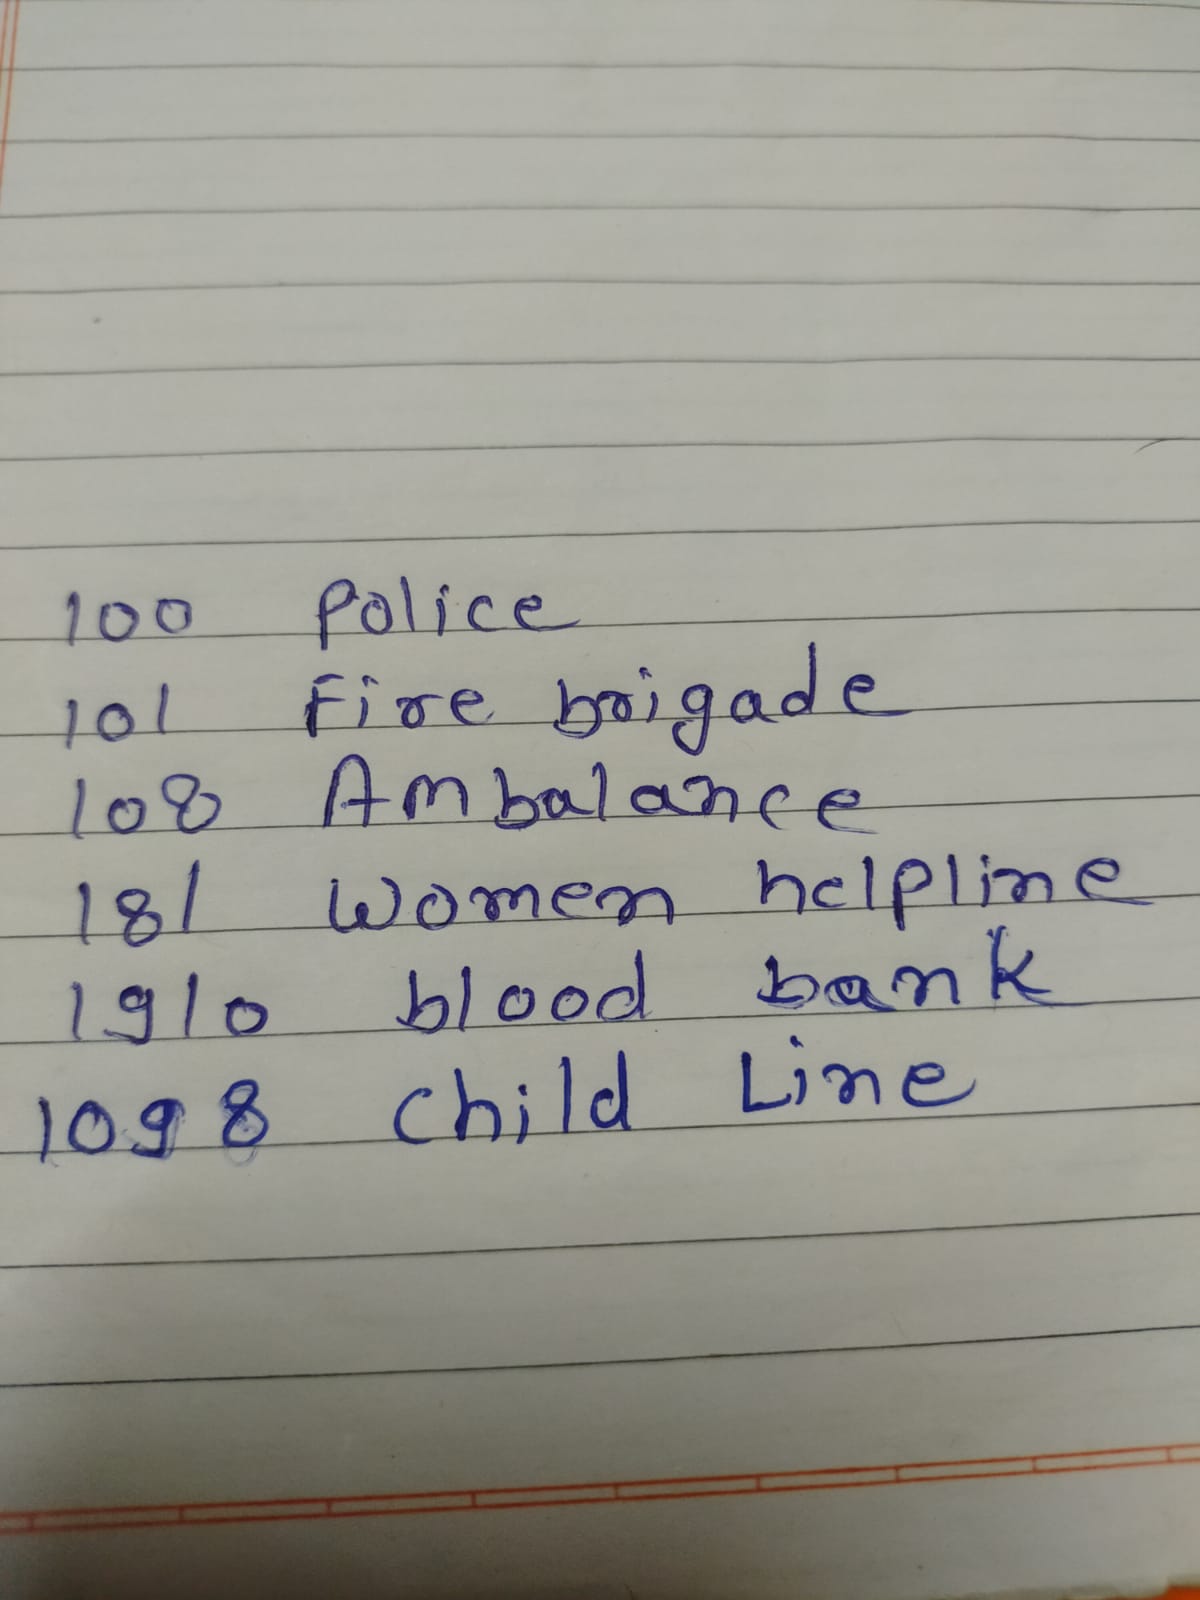 100 Police
101 Fire brigade
108 Ambalance
181 Women helpline
1910 blood bank
1098 child Line